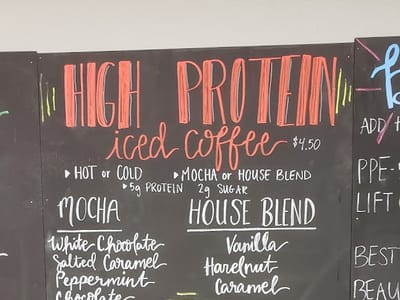 HIGH PROTEIN
iced coffee $4.50
▸ HOT or COLD ▸ MOCHA or HOUSE BLEND
▸ 5g PROTEIN 2g SUGAR
MOCHA
White Chocolate
Salted Caramel
Peppermint
Chocolate
HOUSE BLEND
Vanilla
Hazelnut
Caramel
ADD
PPE-
LIFT
BEST
BEAU